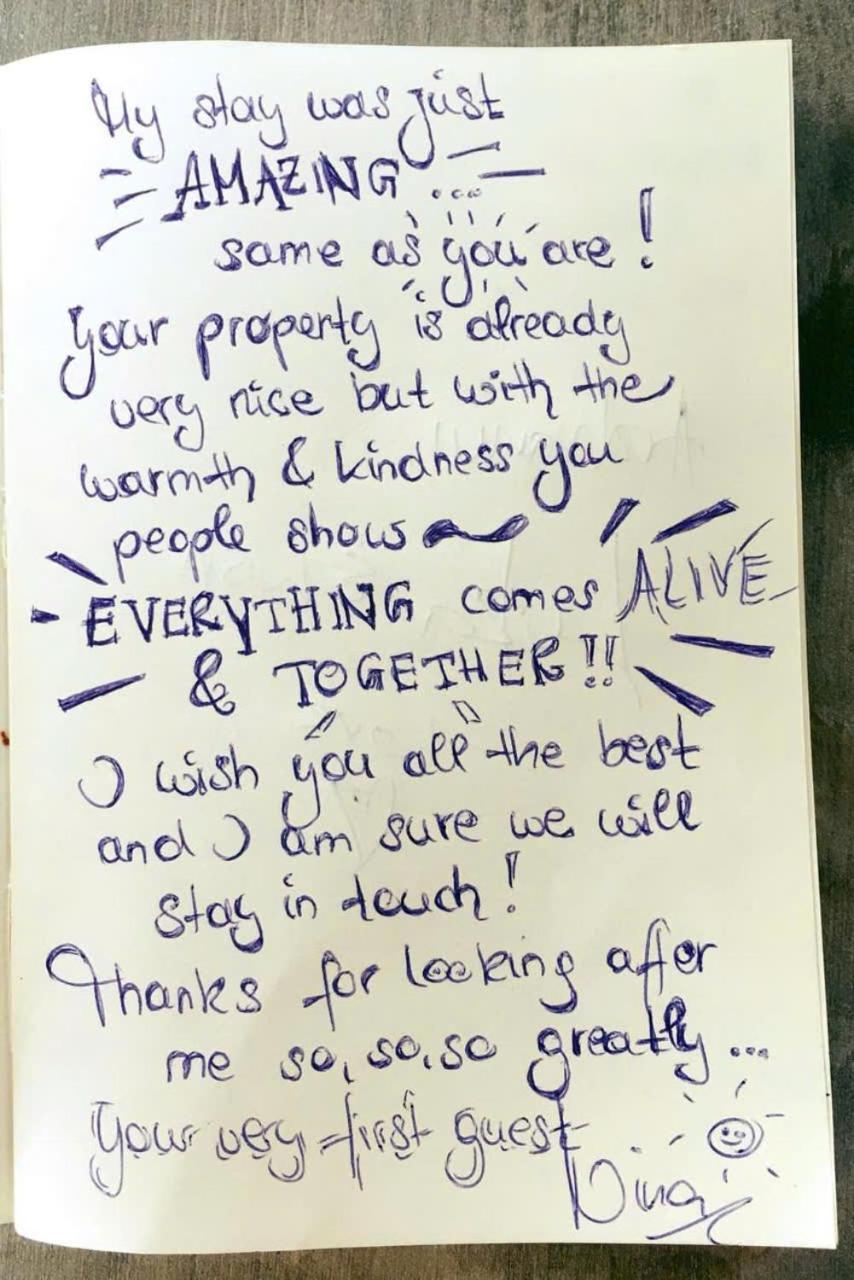 My stay was just
AMAZING ...
same as you are!
Your property is already
very nice but with the
warmth & kindness you
people show
EVERYTHING comes ALIVE
& TOGETHER!!
I wish you all the best
and I am sure we will
stay in touch!
Thanks for looking after
me so, so, so greatly ...
Your very first guest
Nina